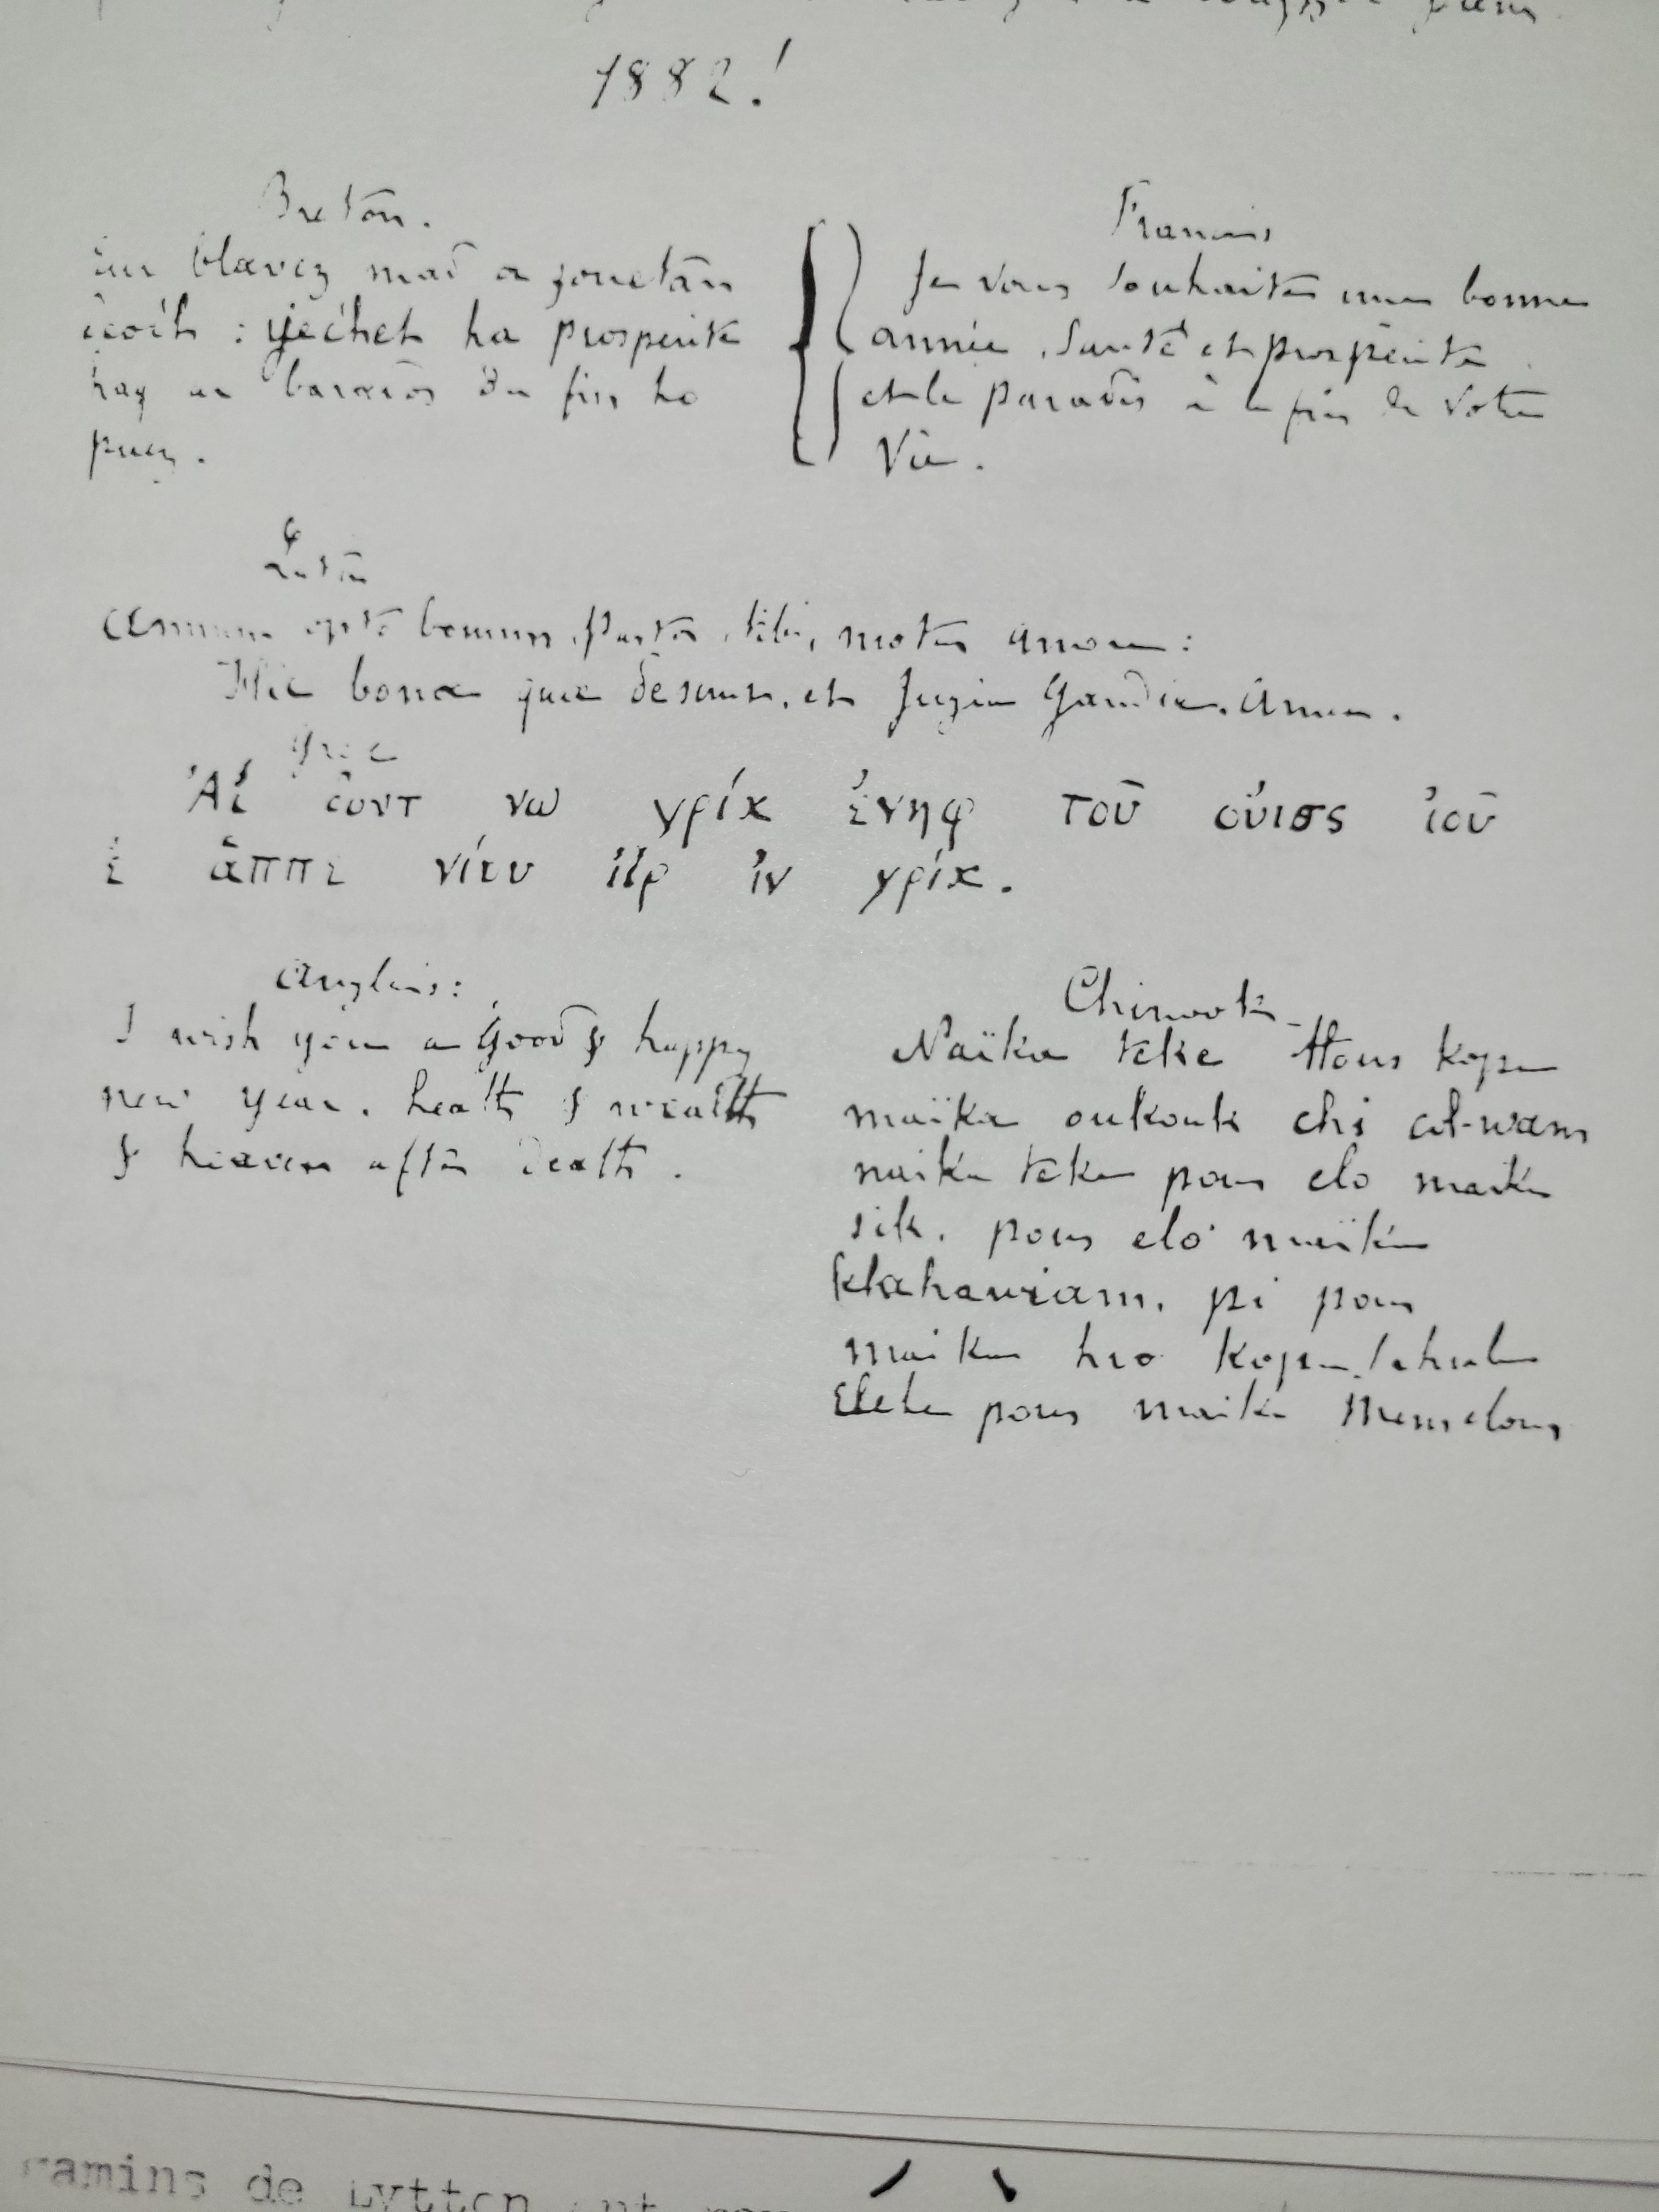 1882!
Breton.
eur blavez mad a zouetan
deoc'h : yec'het ha prosperite
hag ar baradoz da fin ho
puez.
Francais
Je vous souhaite une bonne
année, santé et prospérité
et le paradis à la fin de votre
Vie.
&
Latin
Annum opto bonum, Pastor, tibi, motus amore:
Hic bona quae desunt, et Jugia Gaudia. Amen.
Grec
Ἀί δοντ νω γρίκ ἐνηφ τοῦ οὐισς ἰοῦ
ἐ ἅππε νίευ ἰίρ ἰν γρίκ.
Anglais:
I wish you a Good & happy
new year. health & wealth
& heaven after death.
Chinook
Naïka teke tlous kopa
maïka oukouk chi col-wam
naika teke pous elo maika
sik. pous elo maïka
klahawiam. pi pous
maika kro kopa sahale
Elehe pous maika Memelous
gamins de Lytton ont